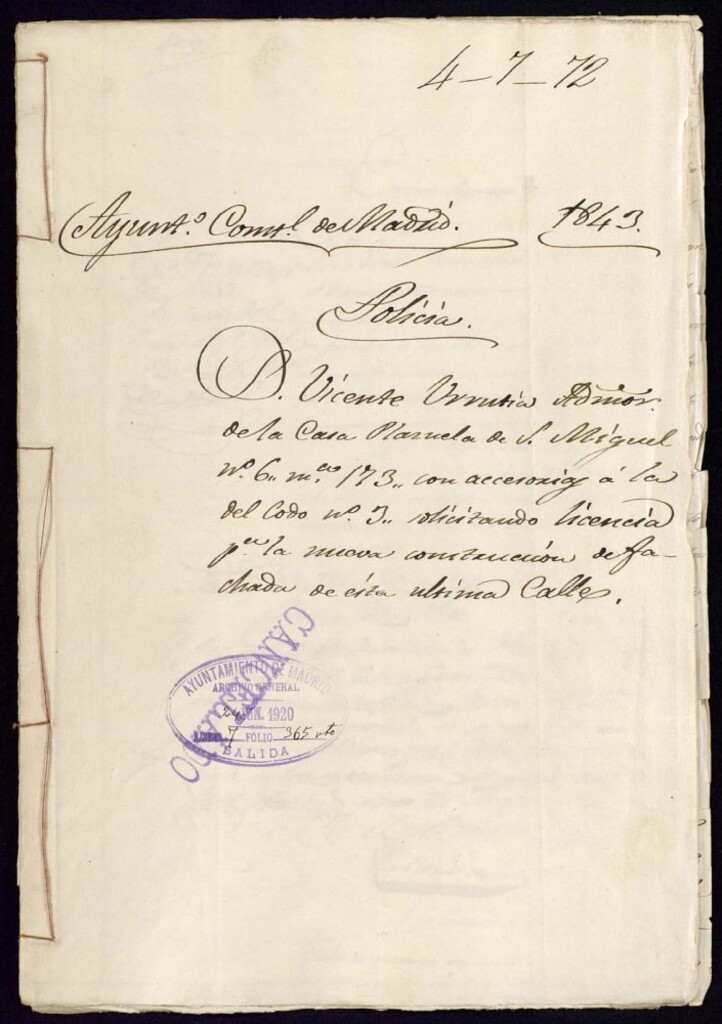 4-7-72
Ayunt.º Const.l de Madrid. 1843.
Policia.
D. Vicente Urrutia Admor.
de la Casa Plazuela de S. Miguel
nº. 6.. m.na 173.. con accesorias á la
del Codo nº. 3.. solicitando licencia
p.ra la nueva construccion de fa-
chada de esta ultima Calle.
CANCELADO
AYUNTAMIENTO DE MADRID
ARCHIVO GENERAL
24 JUN. 1920
9 FOLIO 365 vto
SALIDA